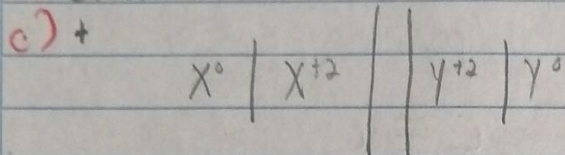 c) +
X⁰ | X⁺² || Y⁺² | Y⁰